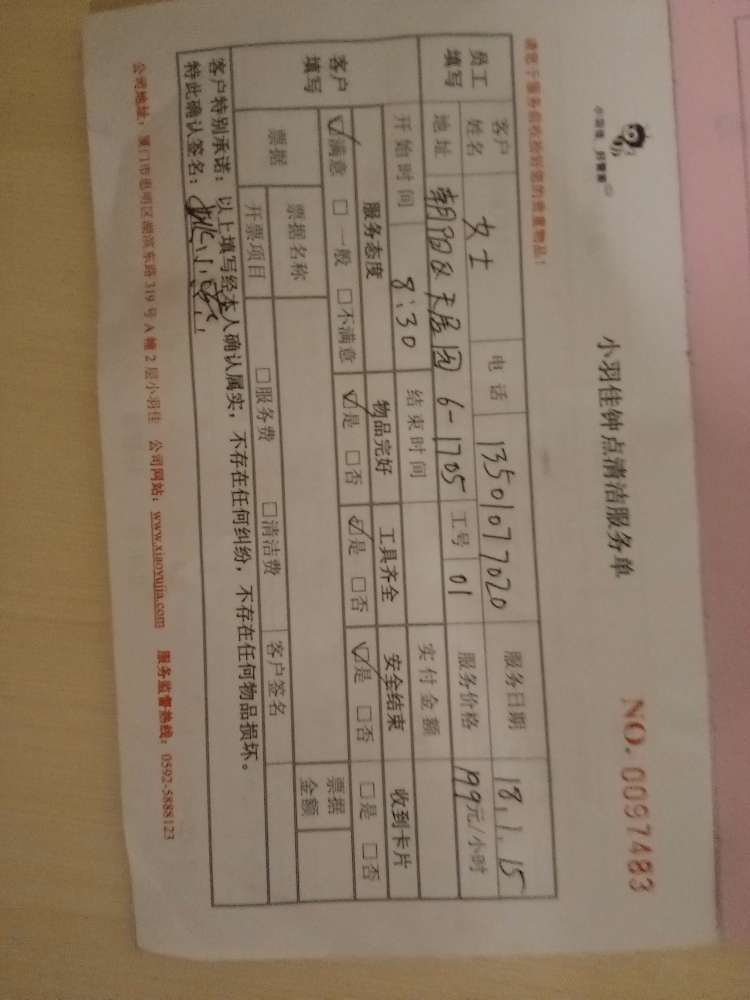 小羽佳 好管家
小羽佳钟点清洁服务单
NO. 0097483
请您于服务前收捡好您的贵重物品！
员工填写
客户姓名 女士 电话 13501077020 服务日期 18.1.15
地址 朝阳区天居园 6-1705 工号 01 服务价格 199元/小时
开始时间 8:30 结束时间 实付金额
客户填写
服务态度 物品完好 工具齐全 安全结束 收到卡片
☑满意 □一般 □不满意 ☑是 □否 ☑是 □否 ☑是 □否 □是 □否
票据 票据名称 票据金额
开票项目 □服务费 □清洁费 客户签名
客户特别承诺：以上填写经本人确认属实，不存在任何纠纷，不存在任何物品损坏。
特此确认签名：
公司地址：厦门市思明区湖滨东路 319 号 A 幢 2 层小羽佳 公司网站：www.xiaoyujia.com 服务监督热线：0592-5888123